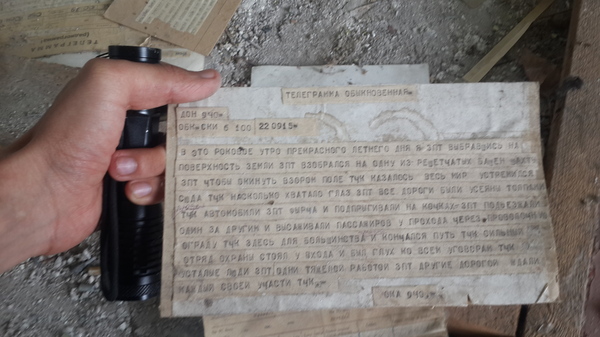 ТЕЛЕГРАММА
ТЕЛЕГРАММА ОБЫКНОВЕННАЯ=
ДОН 940=
5 100 220915=
В ЭТО РОКОВОЕ УТРО ПРЕКРАСНОГО ЛЕТНЕГО ДНЯ Я ЗПТ ВЫБРАВШИСЬ НА
ПОВЕРХНОСТЬ ЗЕМЛИ ЗПТ ВЗОБРАЛСЯ НА ОДНУ ИЗ РЕШЕТЧАТЫХ БАШЕН ШАХТ
ЗПТ ЧТОБЫ ОКИНУТЬ ВЗОРОМ ПОЛЕ ТЧК КАЗАЛОСЬ ВЕСЬ МИР УСТРЕМИЛСЯ
СЮДА ТЧК НАСКОЛЬКО ХВАТАЛО ГЛАЗ ЗПТ ВСЕ ДОРОГИ БЫЛИ УСЕЯНЫ ТОЛПАМИ
ТЧК АВТОМОБИЛИ ЗПТ ФЫРЧА И ПОДПРЫГИВАЛИ НА КОЧКАХ ЗПТ ПОДЪЕЗЖАЛИ
ОДИН ЗА ДРУГИМ И ВЫСАЖИВАЛИ ПАССАЖИРОВ У ПРОХОДА ЧЕРЕЗ ПРОВОЛОЧНУЮ
ОГРАДУ ТЧК ЗДЕСЬ ДЛЯ БОЛЬШИНСТВА И КОНЧАЛСЯ ПУТЬ ТЧК СИЛЬНЫЙ
ОТРЯД ОХРАНЫ СТОЯЛ У ВХОДА И БЫЛ ГЛУХ КО ВСЕМ УГОВОРАМ ТЧК
УСТАЛЫЕ ЛЮДИ ЗПТ ОДНИ ТЯЖЕЛОЙ РАБОТОЙ ЗПТ ДРУГИЕ ДОРОГОЙ ЖДАЛИ
СВОЕЙ УЧАСТИ ТЧК=
ОКА 940=